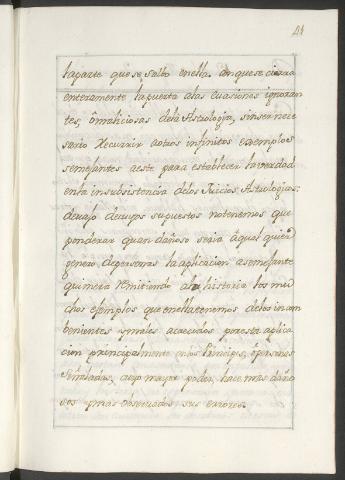 41
laparte que se salto enella. Conque se cierra
enteramente la puerta alas Euasiones ignoran
tes, ô maliciosas dela Astrologia, sinser nece
sario Recurrir aotros infinitos exemplos
semejantes aeste para establecer laverdad
enla insubsistencia delos Juicios Astrologicos:
devajo decuyos supuestos notenemos que
ponderar quan dañoso seria â qual quier
genero depersonas la aplicacion asemejante
quimera remitiendo ala historia los mu
chos exemplos que enella tenemos delos incom
benientes ymales acaecidos poresta aplica
cion principalmente enlos Principes, ô personas
señaladas, cuyo mayor poder, hace mas daño
sos ymas observados sus errores.